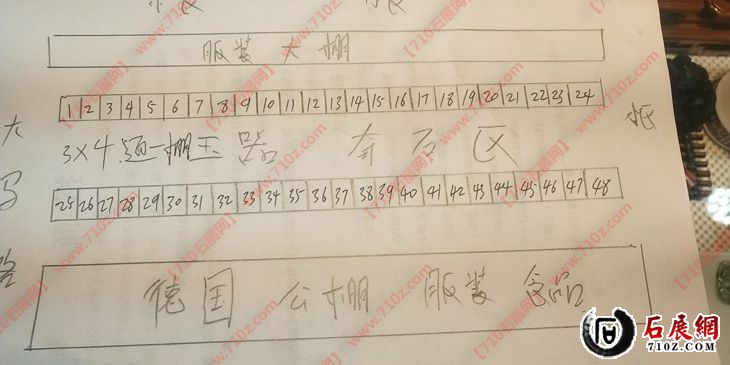 服装大棚
1 2 3 4 5 6 7 8 9 10 11 12 13 14 15 16 17 18 19 20 21 22 23 24
3×4通一棚玉器 奇石区
25 26 27 28 29 30 31 32 33 34 35 36 37 38 39 40 41 42 43 44 45 46 47 48
大马路
德国公棚 服装 食品
【710石展网】www.710z.com
石展網
710Z.COM